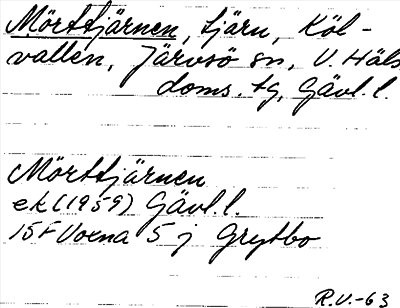 Mörttjärnen, tjärn, Köl-
vallen, Järvsö sn, V. Häls
doms. tg, Gävl. l.
Mörttjärnen
ek (1959) Gävl. l.
15F Voxna 5 j Grytbo
R.V.-63